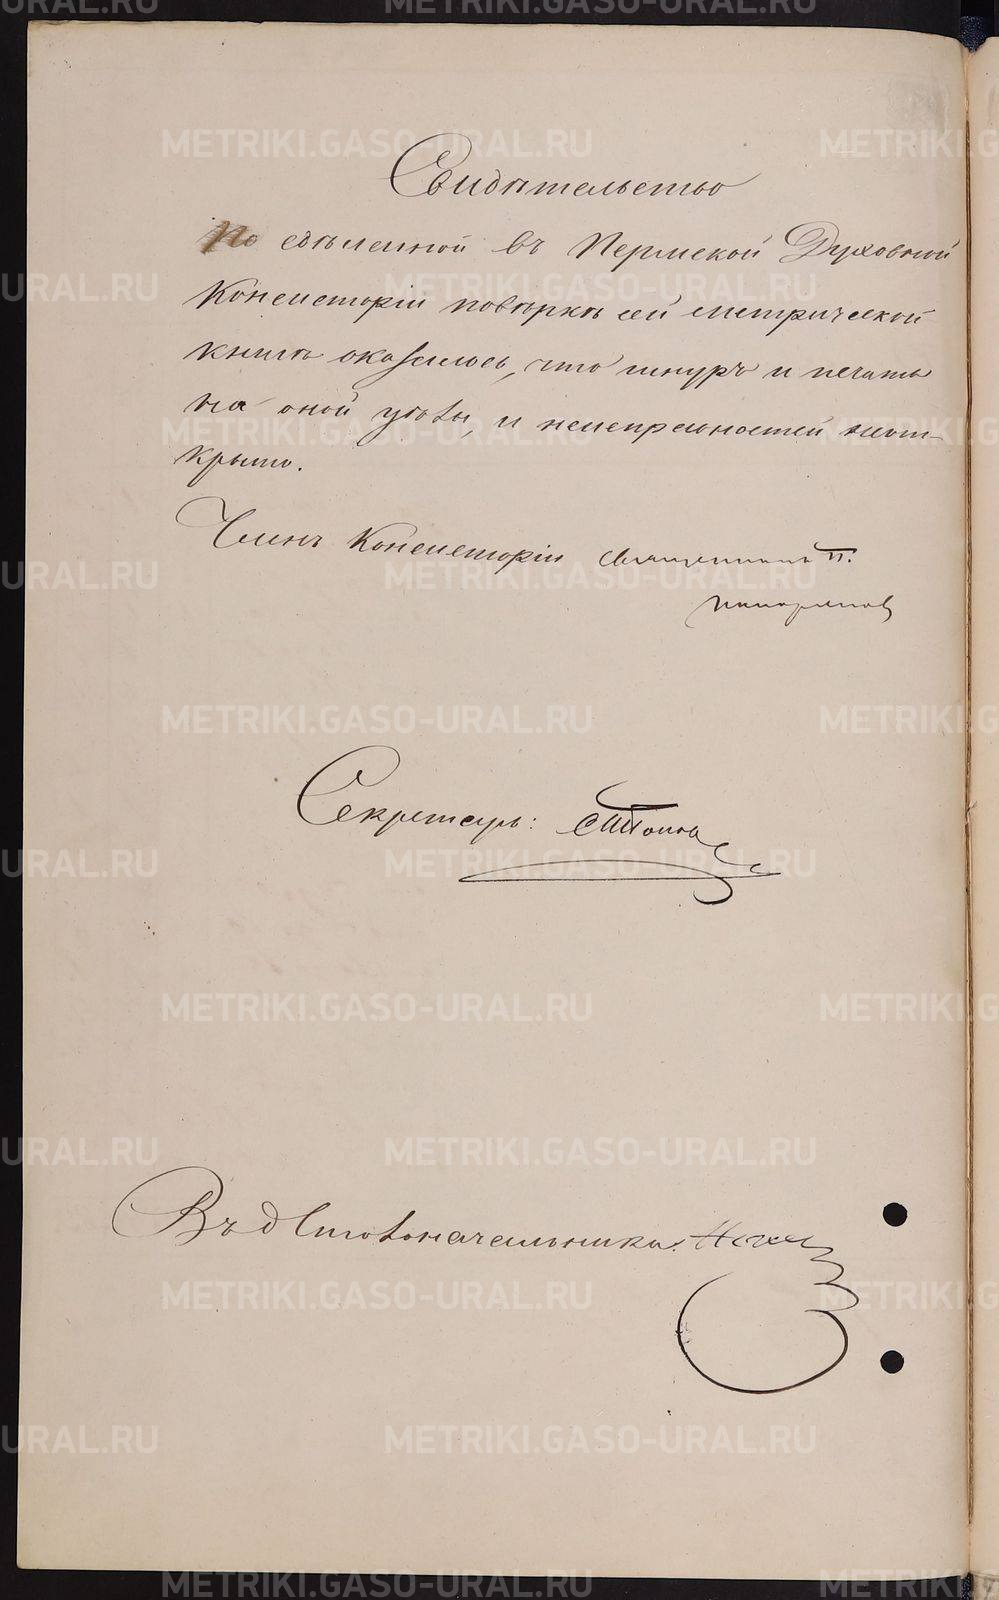 Свидѣтельство
По сдѣланной въ Пермской Духовной
Консисторіи повѣркѣ сей метрической
книги оказалось, что шнуръ и печать
на оной цѣлы, и неисправностей неот-
крыто.
Членъ Консисторіи Священникъ П.
Пономаревъ
Секретарь: Поповъ
Въ д. Столоначальника
METRIKI.GASO-URAL.RU